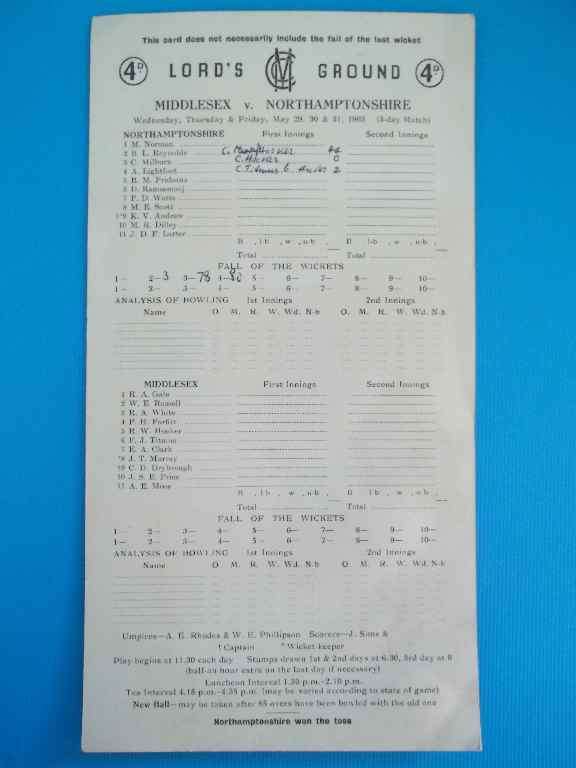 This card does not necessarily include the fall of the last wicket
4D. LORD'S MCC GROUND 4D.
MIDDLESEX v. NORTHAMPTONSHIRE
Wednesday, Thursday & Friday, May 29, 30 & 31, 1963 (3-day Match)
NORTHAMPTONSHIRE First Innings Second Innings
1 M. Norman
2 B. L. Reynolds c. Hooker 44
3 C. Milburn c. Hooker 0
4 A. Lightfoot c Titmus b 2
5 R. M. Prideaux
6 D. Ramsamooj
7 P. D. Watts
8 M. E. Scott
†*9 K. V. Andrew
10 M. R. Dilley
11 J. D. F. Larter
B , l-b , w , n-b , B l-b , w , n-b ,
Total Total
FALL OF THE WICKETS
1— 2—3 3—78 4—80 5— 6— 7— 8— 9— 10—
1— 2— 3— 4— 5— 6— 7— 8— 9— 10—
ANALYSIS OF BOWLING 1st Innings 2nd Innings
Name O. M. R. W. Wd. N-b O. M. R. W. Wd. N-b
MIDDLESEX First Innings Second Innings
1 R. A. Gale
2 W. E. Russell
3 R. A. White
4 P. H. Parfitt
5 R. W. Hooker
6 F. J. Titmus
7 E. A. Clark
*8 J. T. Murray
†9 C. D. Drybrough
10 J. S. E. Price
11 A. E. Moss
B , l b , w , n-b , B l-b , w , n-b ,
Total Total
FALL OF THE WICKETS
1— 2— 3— 4— 5— 6— 7— 8— 9— 10—
1— 2— 3— 4— 5— 6— 7— 8— 9— 10—
ANALYSIS OF BOWLING 1st Innings 2nd Innings
Name O. M. R. W. Wd. N-b O. M. R. W. Wd. N-b
Umpires—A. E. Rhodes & W. E. Phillipson Scorers—J. Sims &
† Captain * Wicket-keeper
Play begins at 11.30 each day Stumps drawn 1st & 2nd days at 6.30, 3rd day at 6
(half-an hour extra on the last day if necessary)
Luncheon Interval 1.30 p.m.-2.10 p.m.
Tea Interval 4.15 p.m.-4.35 p.m. (may be varied according to state of game)
New Ball—may be taken after 85 overs have been bowled with the old one
Northamptonshire won the toss